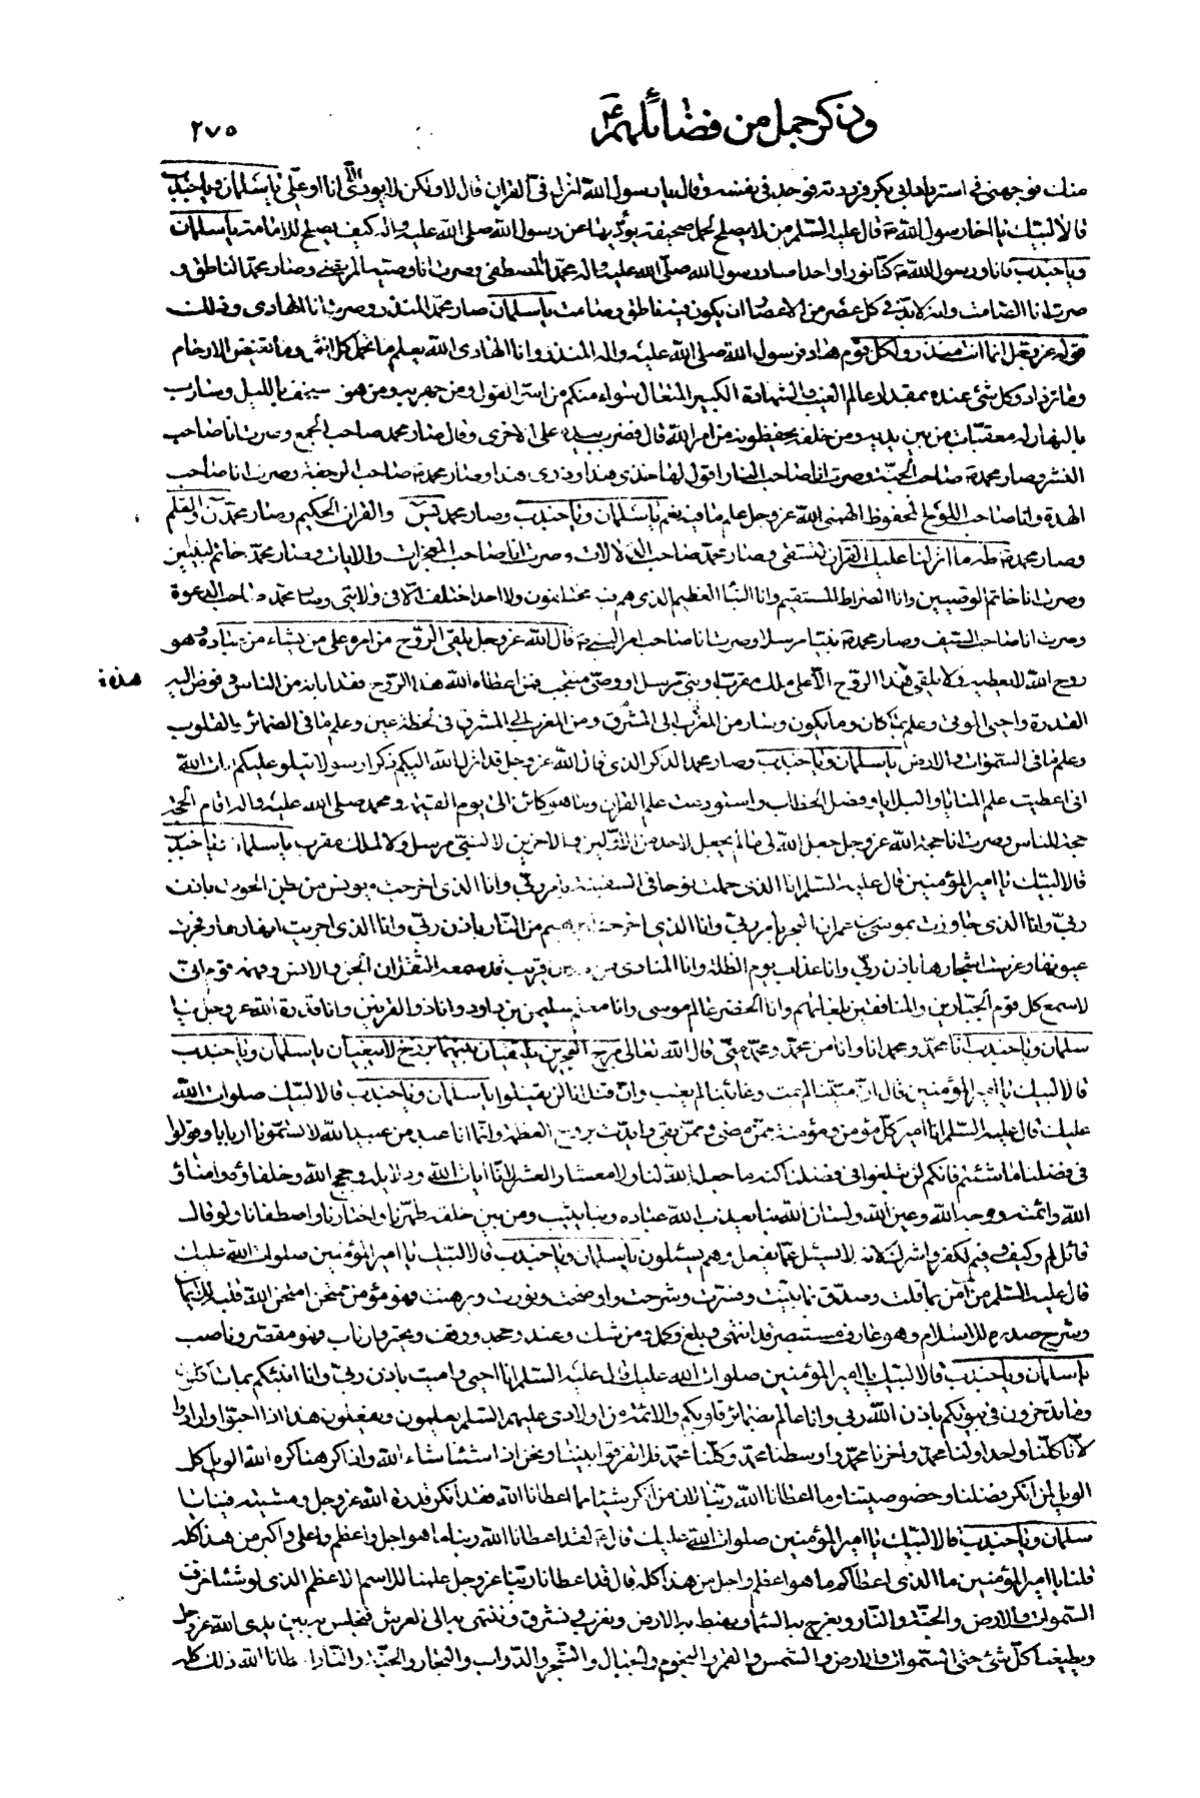 وذكر جمل من فضائلهم ٢٧٥
منك فوجهني في استرداد ابي بكر فرددته فوجد في نفسه وقال يا رسول الله انزل في القران قال لا ولكن لا يؤدي الا انا او علي يا سلمان ويا جندب
قالا لبيك يا اخا رسول الله قال عليه السلم من لا يصلح لحمل صحيفة يؤديها عن رسول الله صلى الله عليه واله كيف يصلح للامامة يا سلمان
ويا جندب فانا ورسول الله كنا نورا واحدا صار رسول الله صلى الله عليه واله محمد المصطفى وصرت انا وصيه المرتضى وصار محمد الناطق و
صرت انا الصامت وانه لا بد في كل عصر من الاعصار ان يكون فيه ناطق وصامت يا سلمان صار محمد المنذر وصرت انا الهادي وذلك
قوله عز وجل انما انت منذر ولكل قوم هاد فرسول الله صلى الله عليه واله المنذر وانا الهادي الله يعلم ما تحمل كل انثى وما تغيض الارحام
وما تزداد وكل شئ عنده بمقدار عالم الغيب والشهادة الكبير المتعال سواء منكم من اسر القول ومن جهر به ومن هو مستخف بالليل وسارب
بالنهار له معقبات من بين يديه ومن خلفه يحفظونه من امر الله قال فضرب بيده على الاخرى وقال صار محمد صاحب الجمع وصرت انا صاحب
النشر وصار محمد صاحب الجنة وصرت انا صاحب النار اقول لها خذي هذا وذري هذا وصار محمد صاحب الرجفة وصرت انا صاحب
الهدة وانا صاحب اللوح المحفوظ الهمني الله عز وجل علم ما فيه نعم يا سلمان ويا جندب وصار محمد يس والقران الحكيم وصار محمد ن والقلم
وصار محمد طه ما انزلنا عليك القران لتشقى وصار محمد صاحب الدلالات وصرت انا صاحب المعجزات والايات وصار محمد خاتم النبيين
وصرت انا خاتم الوصيين وانا الصراط المستقيم وانا النبأ العظيم الذي هم فيه مختلفون ولا احد اختلف الا في ولايتي وصار محمد صاحب الدعوة
وصرت انا صاحب السيف وصار محمد نبيا مرسلا وصرت انا صاحب امر النبي قال الله عز وجل يلقي الروح من امره على من يشاء من عباده وهو
روح الله لا يعطيه ولا يلقي هذا الروح الا على ملك مقرب او نبي مرسل او وصي منتجب فمن اعطاه الله هذا الروح فقد ابانه من الناس وفوض اليه
هذه:
القدرة واحيى الموتى وعلم بما كان وما يكون وسار من المغرب الى المشرق ومن المشرق الى المغرب في لحظة عين وعلم ما في الضمائر والقلوب
وعلم ما في السموات والارض يا سلمان ويا جندب وصار محمد الذكر الذي قال الله عز وجل قد انزل الله اليكم ذكرا رسولا يتلو عليكم ايات الله
اني اعطيت علم المنايا والبلايا وفصل الخطاب واستودعت علم القران وما هو كائن الى يوم القيمة ومحمد صلى الله عليه واله اقام الحجة
حجة للناس وصرت انا حجة الله عز وجل جعل الله لي ما لم يجعل لاحد من الاولين والاخرين لا لنبي مرسل ولا لملك مقرب يا سلمان ويا جندب
قالا لبيك يا امير المؤمنين قال عليه السلم انا الذي حملت نوحا في السفينة بامر ربي وانا الذي اخرجت يونس من بطن الحوت باذن
ربي وانا الذي جاوزت بموسى بن عمران البحر بامر ربي وانا الذي اخرجت ابراهيم من النار باذن ربي وانا الذي اجريت انهارها وفجرت
عيونها وغرست اشجارها باذن ربي وانا عذاب يوم الظلة وانا المنادي من مكان قريب قد سمعه الثقلان الجن والانس وفهمه قوم اني
لاسمع كل قوم الجبارين والمنافقين بلغاتهم وانا الخضر عالم موسى وانا معلم سليمن بن داود وانا ذو القرنين وانا قدرة الله عز وجل يا
سلمان ويا جندب انا محمد ومحمد انا وانا من محمد ومحمد مني قال الله تعالى مرج البحرين يلتقيان بينهما برزخ لا يبغيان يا سلمان ويا جندب
قالا لبيك يا امير المؤمنين قال ان ميتنا لم يمت وغائبنا لم يغب وان قتلانا لن يقتلوا يا سلمان ويا جندب قالا لبيك صلوات الله
عليك قال عليه السلم انا امير كل مؤمن ومؤمنة ممن مضى وممن بقي وايدت بروح العظمة وانما انا عبد من عبيد الله لا تسمونا اربابا وقولوا
في فضلنا ما شئتم فانكم لن تبلغوا في فضلنا كنه ما جعله الله لنا ولا معشار العشر لانا ايات الله ودلايله وحجج الله وخلفاؤه وامناؤ
الله وائمته ووجه الله وعين الله ولسان الله بنا يعذب الله عباده وبنا يثيب ومن بين خلقه طهرنا واختارنا واصطفانا ولو قال
قائل لم وكيف وفيم لكفر واشرك لانه لا يسئل عما يفعل وهم يسئلون يا سلمان ويا جندب قالا لبيك يا امير المؤمنين صلوات الله عليك
قال عليه السلم من امن بما قلت وصدق بما بينت وفسرت وشرحت واوضحت ونورت وبرهنت فهو مؤمن ممتحن امتحن الله قلبه للايمان
وشرح صدره للاسلام وهو عارف مستبصر قد انتهى وبلغ وكمل ومن شك وعند وجحد ووقف وتحير وارتاب فهو مقصر وناصب
يا سلمان ويا جندب قالا لبيك يا امير المؤمنين صلوات الله عليك قال عليه السلم انا احيي واميت باذن ربي وانا انبئكم بما تاكلون
وما تدخرون في بيوتكم باذن الله ربي وانا عالم بضمائر قلوبكم والائمة من اولادي عليهم السلم يعلمون ويفعلون هذا اذا احبوا وارادوا
لانا كلنا واحد اولنا محمد واخرنا محمد واوسطنا محمد وكلنا محمد فلا تفرقوا بيننا ونحن اذا شئنا شاء الله واذا كرهنا كره الله الويل كل
الويل لمن انكر فضلنا وخصوصيتنا وما اعطانا الله ربنا لان من انكر شيئا مما اعطانا الله فقد انكر قدرة الله عز وجل ومشيته فينا يا
سلمان ويا جندب قالا لبيك يا امير المؤمنين صلوات الله عليك قال لقد اعطانا الله ربنا ما هو اجل واعظم واعلى واكبر من هذا كله
قلنا يا امير المؤمنين ما الذي اعطاكم ما هو اعظم واجل من هذا كله قال قد اعطانا ربنا عز وجل علمنا للاسم الاعظم الذي لو شئنا خرقت
السموات والارض والجنة والنار ونعرج به السماء ونهبط به الارض ونغرب ونشرق وننتهي به الى العرش فنجلس عليه بين يدي الله عز وجل
ويطيعنا كل شئ حتى السموات والارض والشمس والقمر والنجوم والجبال والشجر والدواب والبحار والجنة والنار اعطانا الله ذلك كله